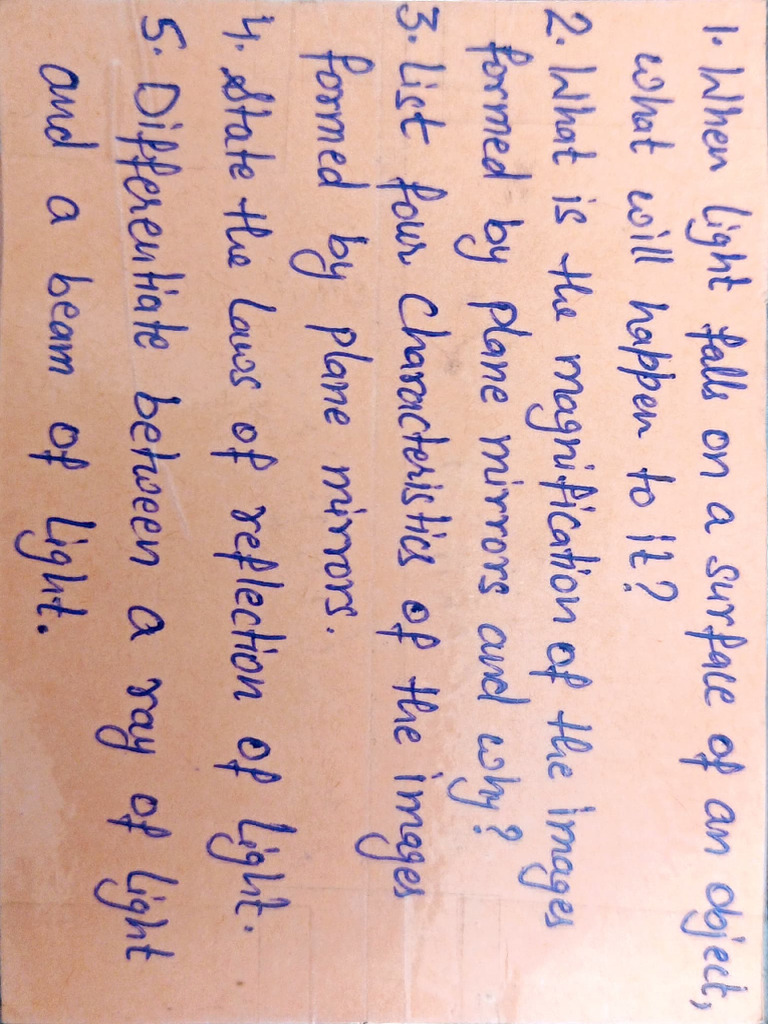 1. When light falls on a surface of an object,
what will happen to it?
2. What is the magnification of the images
formed by plane mirrors and why?
3. List four characteristics of the images
formed by plane mirrors.
4. State the laws of reflection of light.
5. Differentiate between a ray of light
and a beam of light.